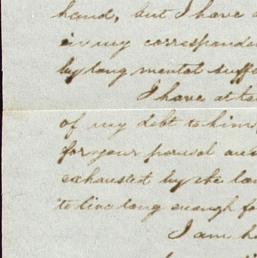 hand, but I have
in my correspondence
by long mental suffe
I have at to
of my debt to him
for your perusal
exhausted by the la
to live long enough fo
I am he